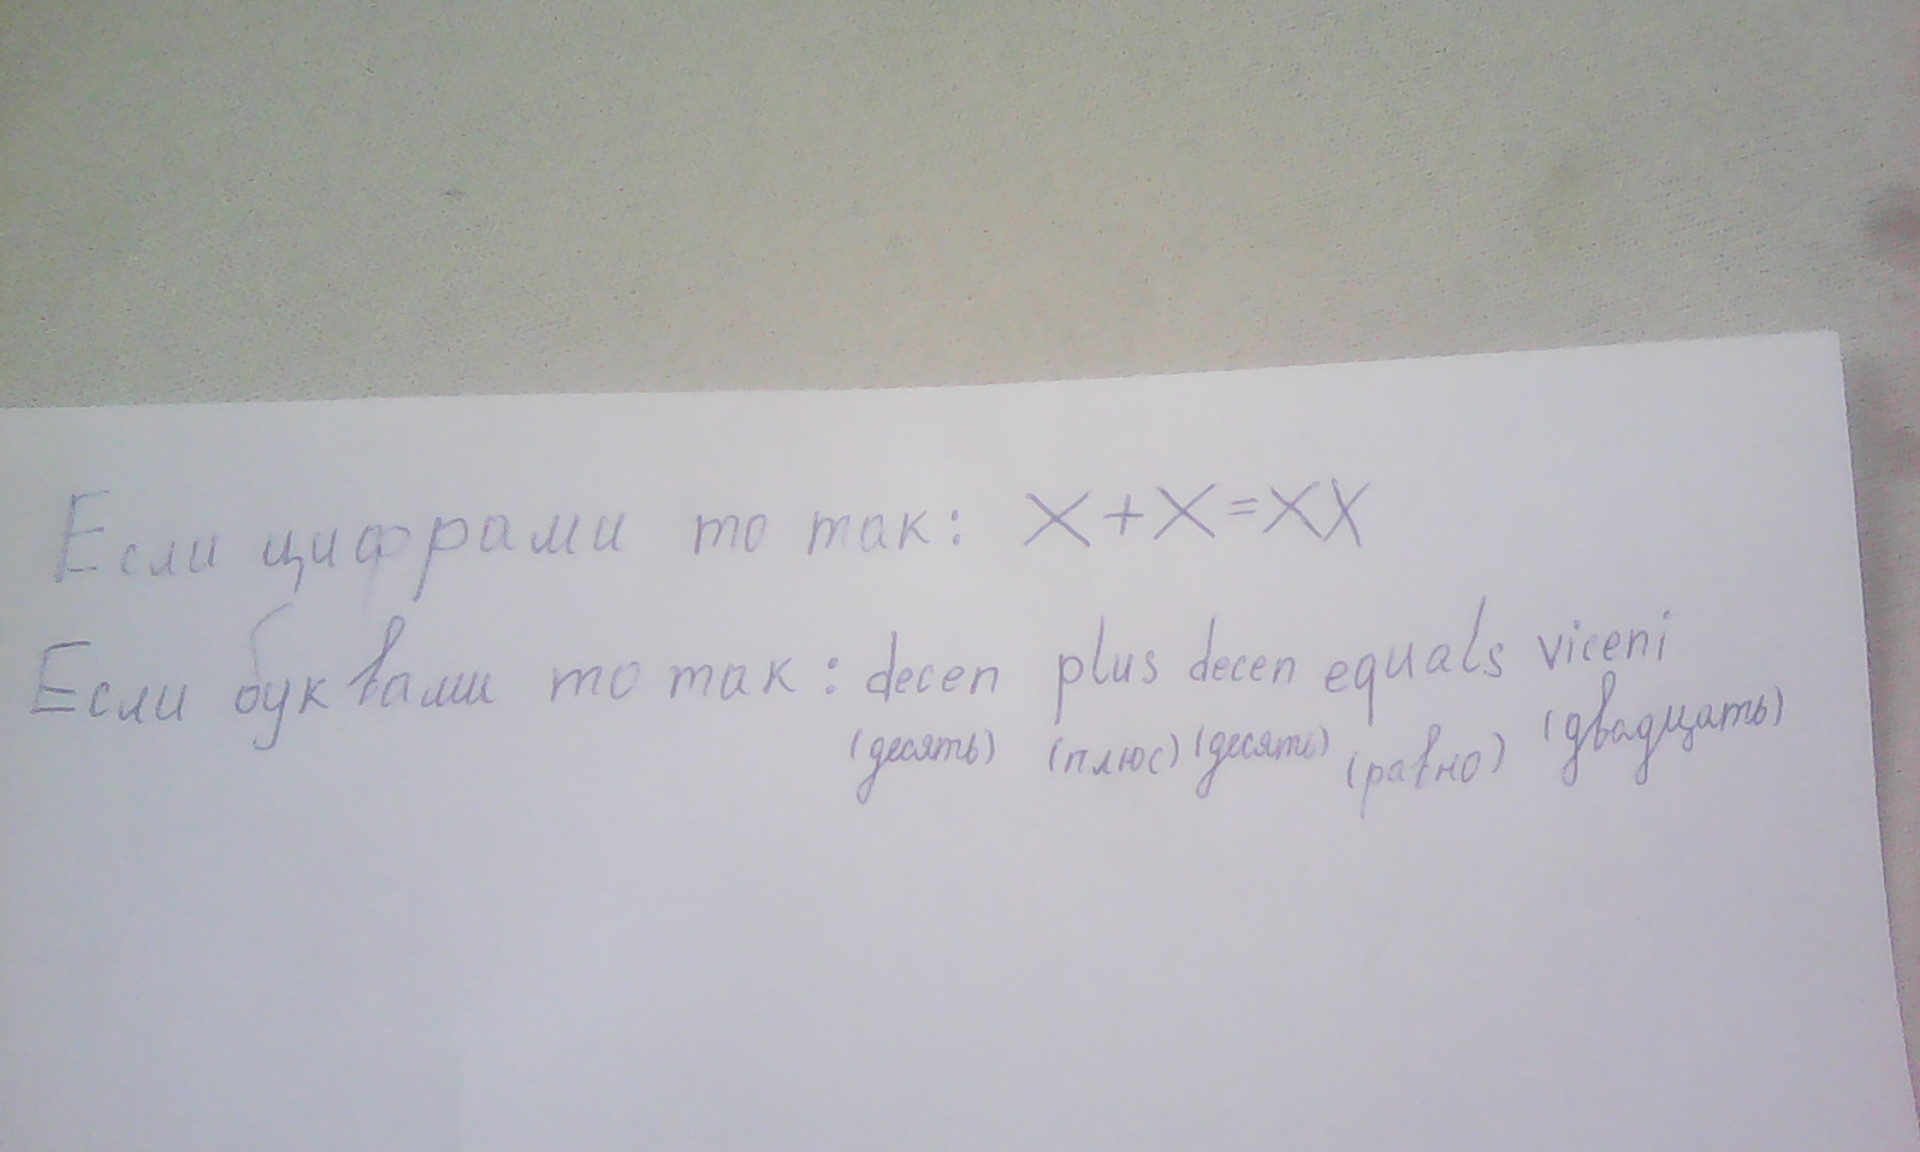 Если цифрами то так: X+X=XX
Если буквами то так: decen plus decen equals viceni
(десять) (плюс) (десять) (равно) (двадцать)